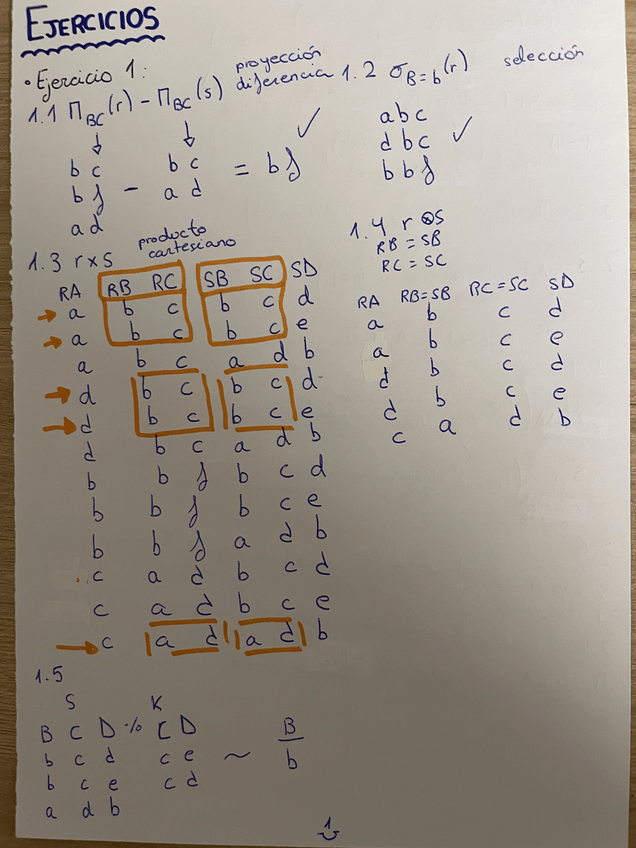 EJERCICIOS
• Ejercicio 1:
1.1 Π_BC(r) - Π_BC(s) proyección diferencia
b c b c
b f - a d = b f ✓
a d
1.2 σ_B=b(r) selección
a b c
d b c ✓
b b f
1.3 r x s producto cartesiano
RA RB RC SB SC SD
→ a b c b c d
→ a b c b c e
a b c a d b
→ d b c b c d
→ d b c b c e
d b c a d b
b b f b c d
b b f b c e
b b f a d b
c a d b c d
c a d b c e
→ c a d a d b
1.4 r ⊗ s
RB = SB
RC = SC
RA RB=SB RC=SC SD
a b c d
a b c e
d b c d
d b c e
c a d b
1.5
S K
B C D % C D B
b c d c e ~ b
b c e c d
a d b
1